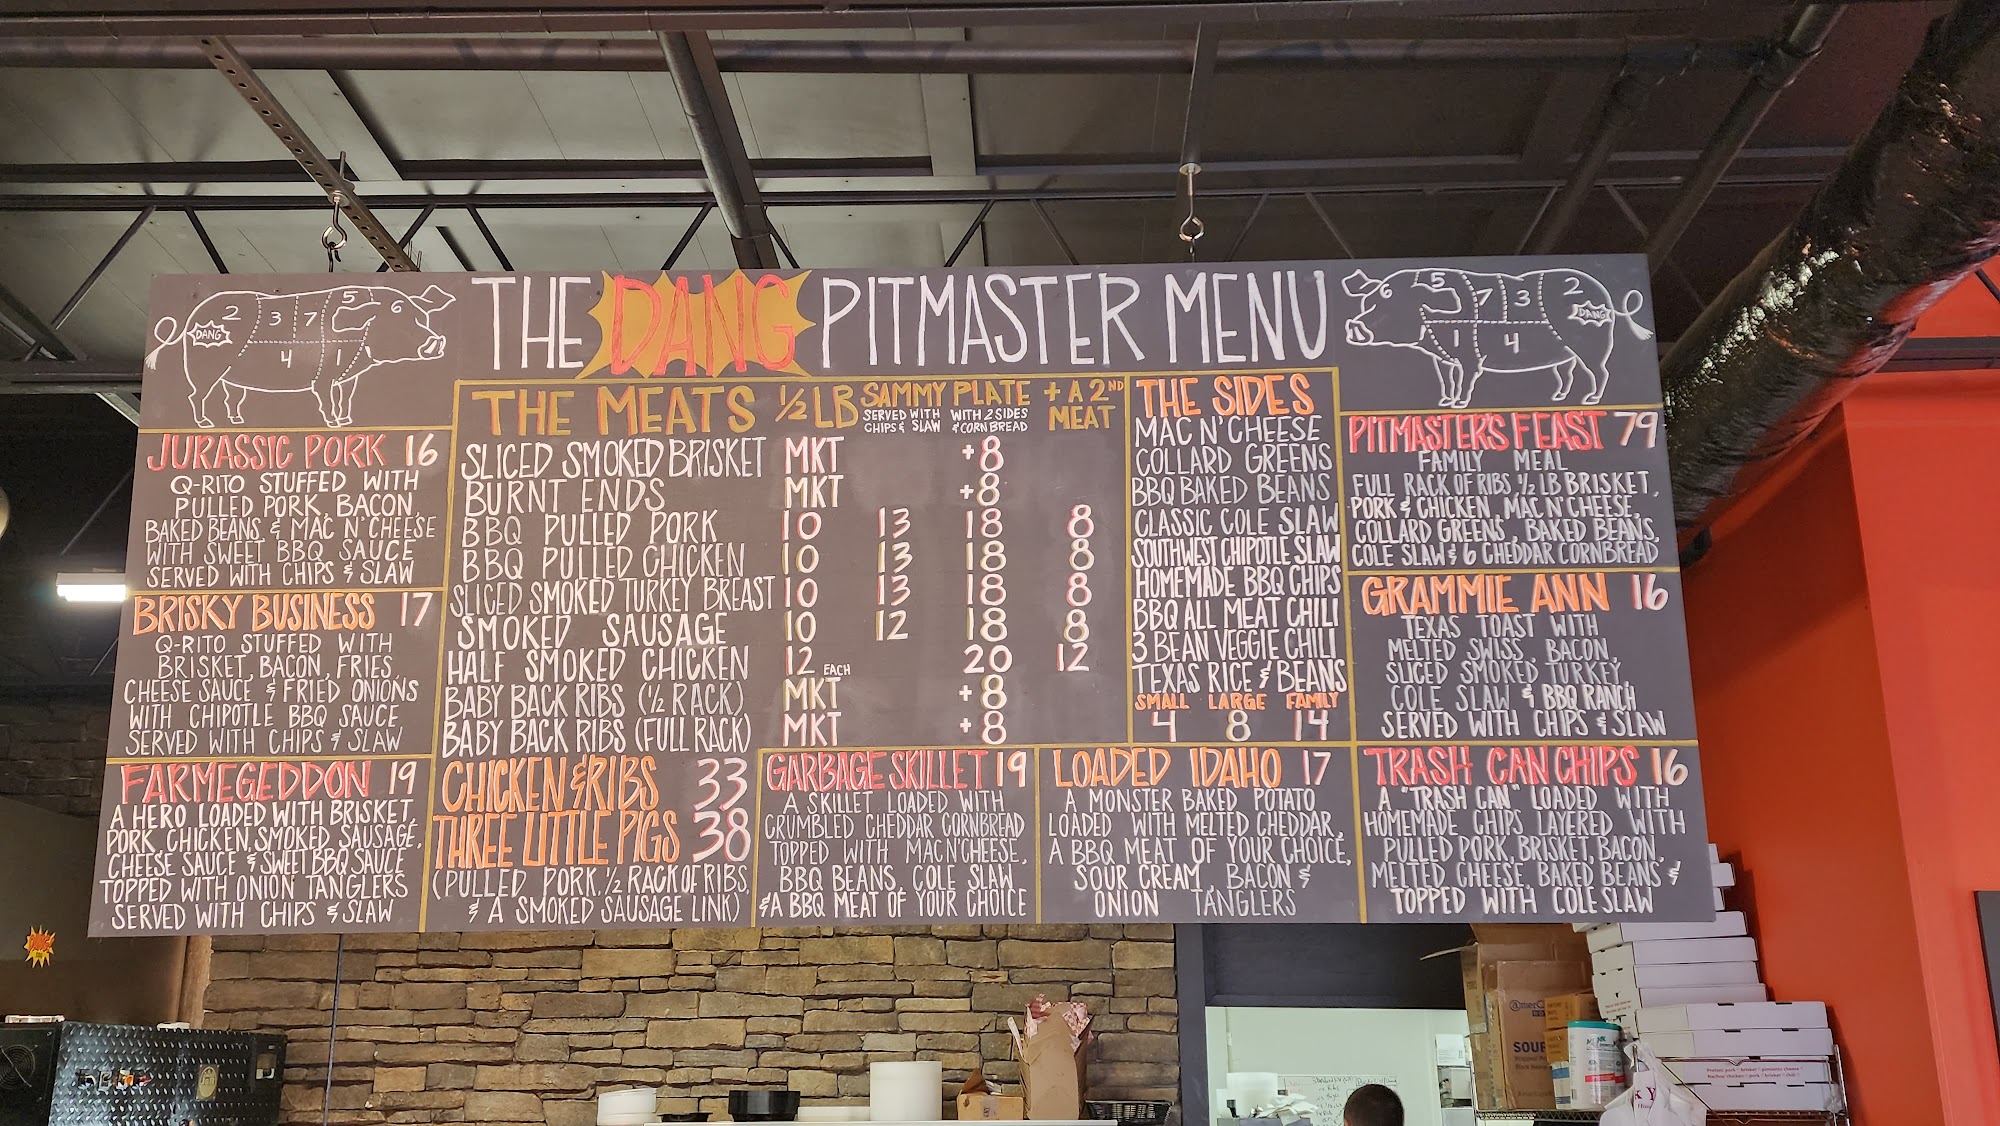 THE DANG PITMASTER MENU
2 3 7 5 6
DANG
4 1
JURASSIC PORK 16
Q-RITO STUFFED WITH
PULLED PORK, BACON,
BAKED BEANS & MAC N' CHEESE
WITH SWEET BBQ SAUCE
SERVED WITH CHIPS & SLAW
BRISKY BUSINESS 17
Q-RITO STUFFED WITH
BRISKET, BACON, FRIES,
CHEESE SAUCE & FRIED ONIONS
WITH CHIPOTLE BBQ SAUCE
SERVED WITH CHIPS & SLAW
FARMEGEDDON 19
A HERO LOADED WITH BRISKET,
PORK, CHICKEN, SMOKED SAUSAGE,
CHEESE SAUCE & SWEET BBQ SAUCE
TOPPED WITH ONION TANGLERS
SERVED WITH CHIPS & SLAW
THE MEATS 1/2 LB SAMMY PLATE + A 2ND
SERVED WITH WITH 2 SIDES MEAT
CHIPS & SLAW & CORNBREAD
SLICED SMOKED BRISKET MKT +8
BURNT ENDS MKT +8
BBQ PULLED PORK 10 13 18 8
BBQ PULLED CHICKEN 10 13 18 8
SLICED SMOKED TURKEY BREAST 10 13 18 8
SMOKED SAUSAGE 10 12 18 8
HALF SMOKED CHICKEN 12 EACH 20 12
BABY BACK RIBS (1/2 RACK) MKT +8
BABY BACK RIBS (FULL RACK) MKT +8
CHICKEN & RIBS 33
THREE LITTLE PIGS 38
(PULLED PORK, 1/2 RACK OF RIBS,
& A SMOKED SAUSAGE LINK)
GARBAGE SKILLET 19
A SKILLET LOADED WITH
CRUMBLED CHEDDAR CORNBREAD
TOPPED WITH MAC N' CHEESE,
BBQ BEANS, COLE SLAW
& A BBQ MEAT OF YOUR CHOICE
LOADED IDAHO 17
A MONSTER BAKED POTATO
LOADED WITH MELTED CHEDDAR,
A BBQ MEAT OF YOUR CHOICE,
SOUR CREAM, BACON &
ONION TANGLERS
THE SIDES
MAC N' CHEESE
COLLARD GREENS
BBQ BAKED BEANS
CLASSIC COLE SLAW
SOUTHWEST CHIPOTLE SLAW
HOMEMADE BBQ CHIPS
BBQ ALL MEAT CHILI
3 BEAN VEGGIE CHILI
TEXAS RICE & BEANS
SMALL LARGE FAMILY
4 8 14
6 5 7 3 2
DANG
1 4
PITMASTER'S FEAST 79
FAMILY MEAL
FULL RACK OF RIBS 1/2 LB BRISKET,
PORK & CHICKEN, MAC N' CHEESE,
COLLARD GREENS, BAKED BEANS,
COLE SLAW & 6 CHEDDAR CORNBREAD
GRAMMIE ANN 16
TEXAS TOAST WITH
MELTED SWISS, BACON,
SLICED SMOKED TURKEY,
COLE SLAW & BBQ RANCH
SERVED WITH CHIPS & SLAW
TRASH CAN CHIPS 16
A "TRASH CAN" LOADED WITH
HOMEMADE CHIPS LAYERED WITH
PULLED PORK, BRISKET, BACON,
MELTED CHEESE, BAKED BEANS &
TOPPED WITH COLE SLAW
SOUF